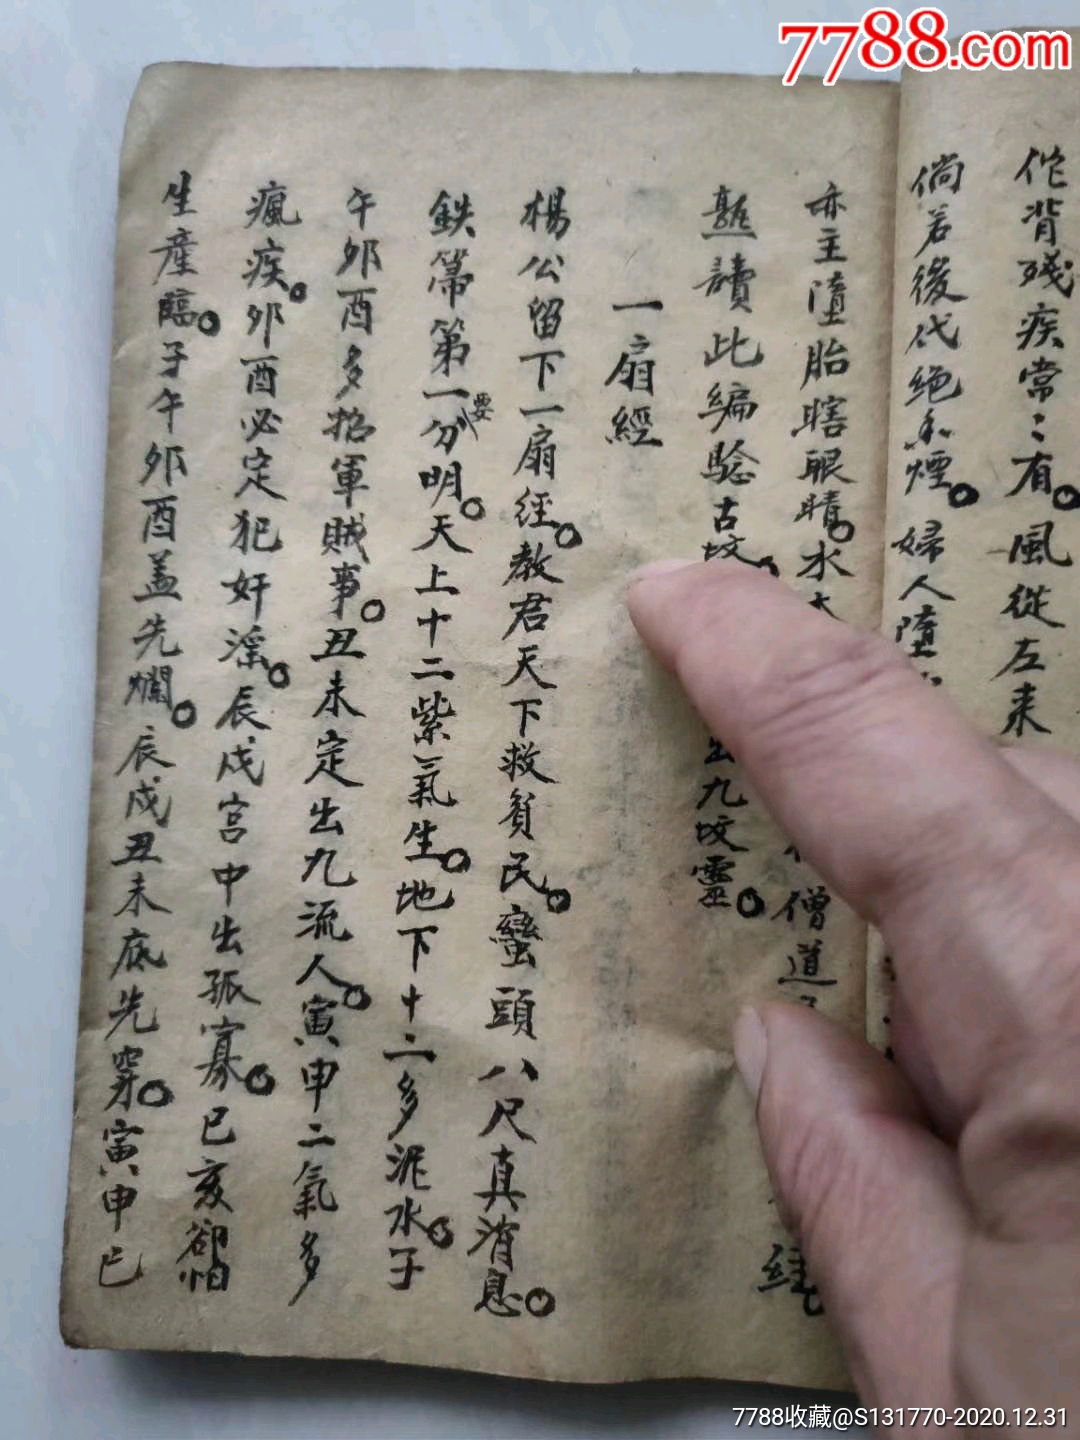 7788.com
佗背残疾常〻有。風從左来
倘若後代绝香煙。婦人墮
亦主墮胎瞎眼睛。水
僧道
經。
熟讀此編驗古坟。
出九坟靈。
一扇經
楊公留下一扇經。教君天下救貧民。蠻頭八尺真消息。
鉄帚第一要分明。天上十二紫氣生。地下十二多泥水。子
午夘酉多招軍賊事。丑未定出九流人。寅申二氣多
瘋疾。夘酉必定犯奸淫。辰戌宫中出孤寡。巳亥卻怕
生產臨。子午夘酉盖先爛。辰戌丑未底先穿。寅申巳
7788收藏@S131770-2020.12.31